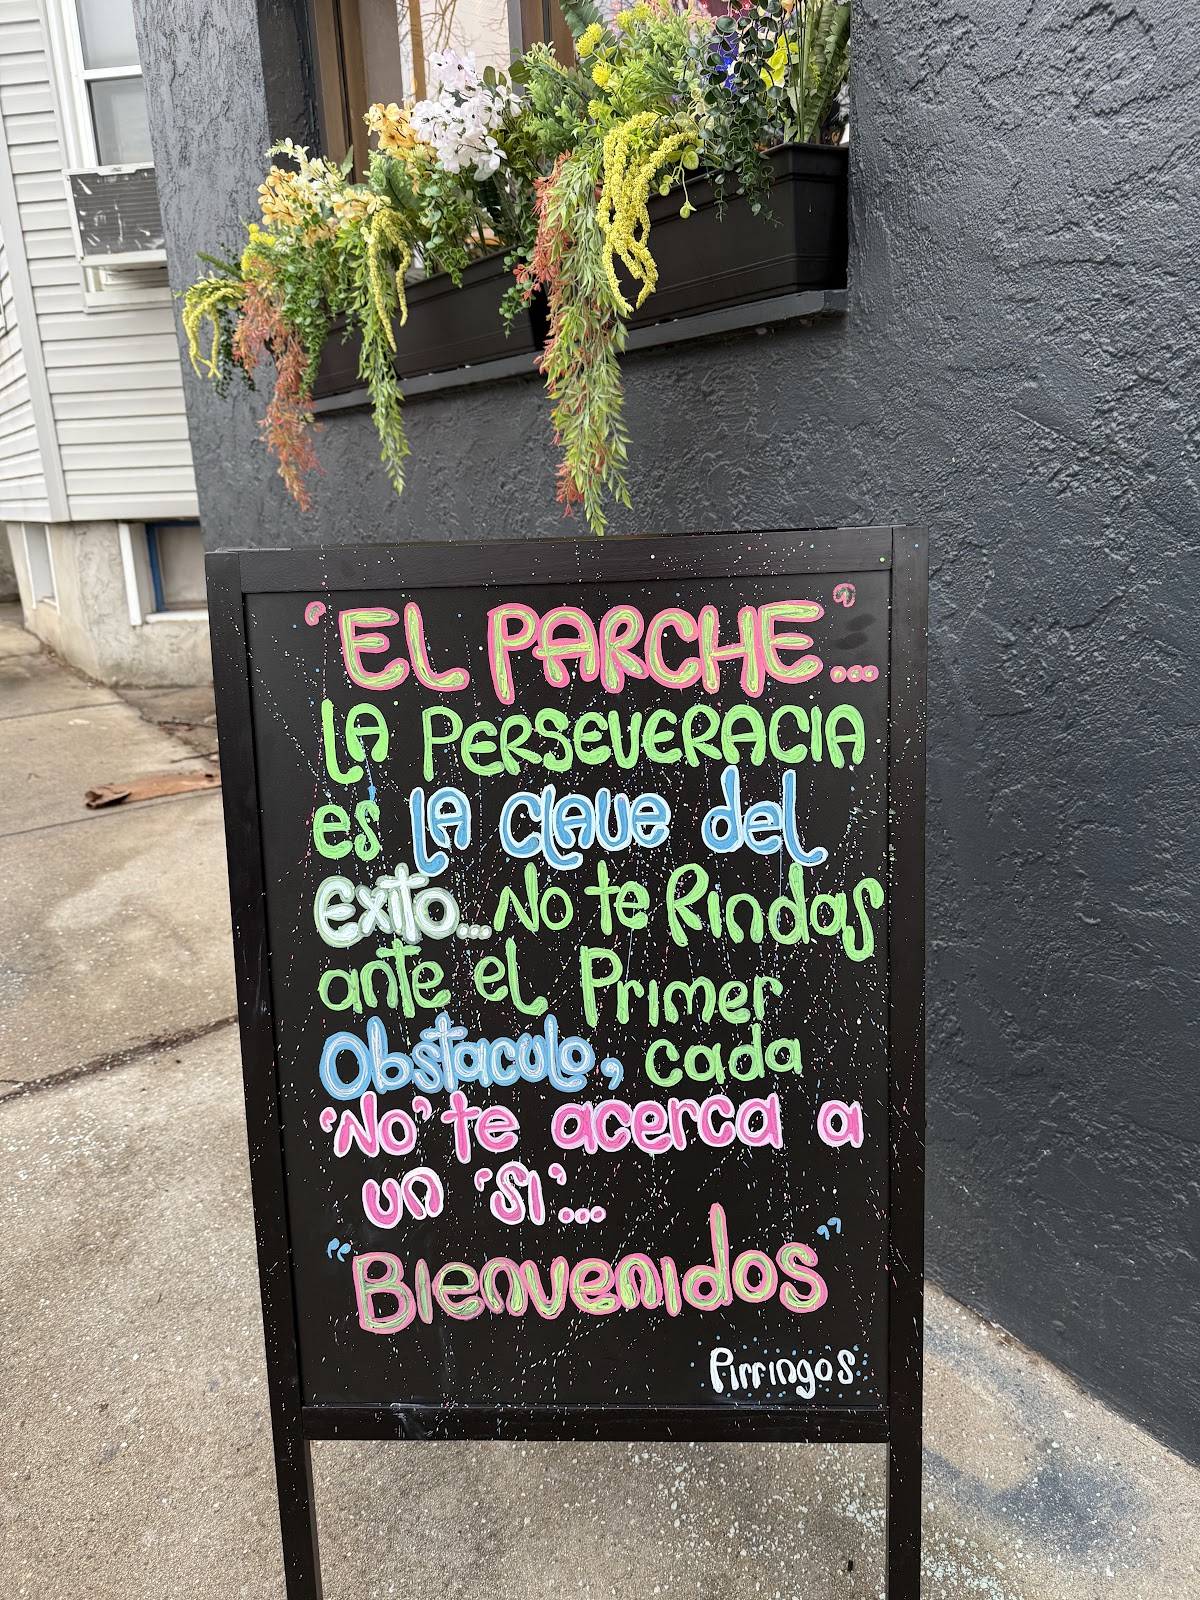 "EL PARCHE"...
LA PERSEVERACIA
es LA ClAUe del
Exito... No te Rindas
ante el Primer
Obstaculo, cada
"No" te acerca a
un "SI"...
"Bienvenidos"
Pirringos